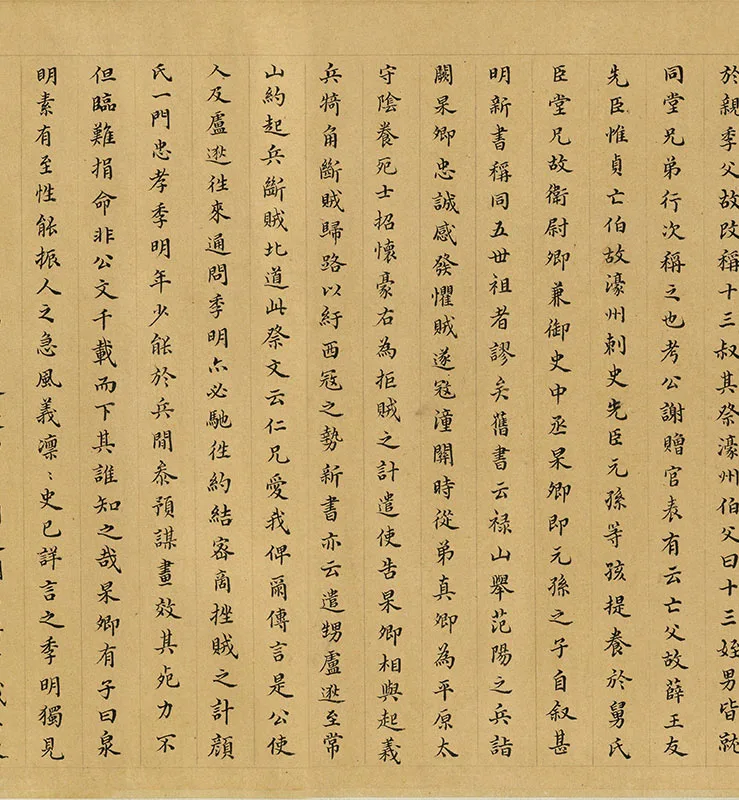 於親季父故改稱十三叔其祭濠州伯父曰十三姪男皆就
同堂兄弟行次稱之也考公謝贈官表有云亡父故薛王友
先臣惟貞亡伯故濠州刺史先臣元孫等孩提養於舅氏
臣堂兄故衛尉卿兼御史中丞杲卿即元孫之子自叙甚
明新書稱同五世祖者謬矣舊書云禄山舉范陽之兵詣
闕杲卿忠誠感發懼賊遂寇潼關時從弟真卿為平原太
守陰養死士招懷豪右為拒賊之計遣使告杲卿相與起義
兵犄角斷賊歸路以紓西寇之勢新書亦云遣甥盧逖至常
山約起兵斷賊北道此祭文云仁兄愛我俾爾傳言是公使
人及盧逖徃來通問季明亦必馳徃約結密商挫賊之計顔
氏一門忠孝季明年少能於兵間叅預謀畫效其死力不
但臨難捐命非公文千載而下其誰知之哉杲卿有子曰泉
明素有至性能振人之急風義凛〻史已詳言之季明獨見